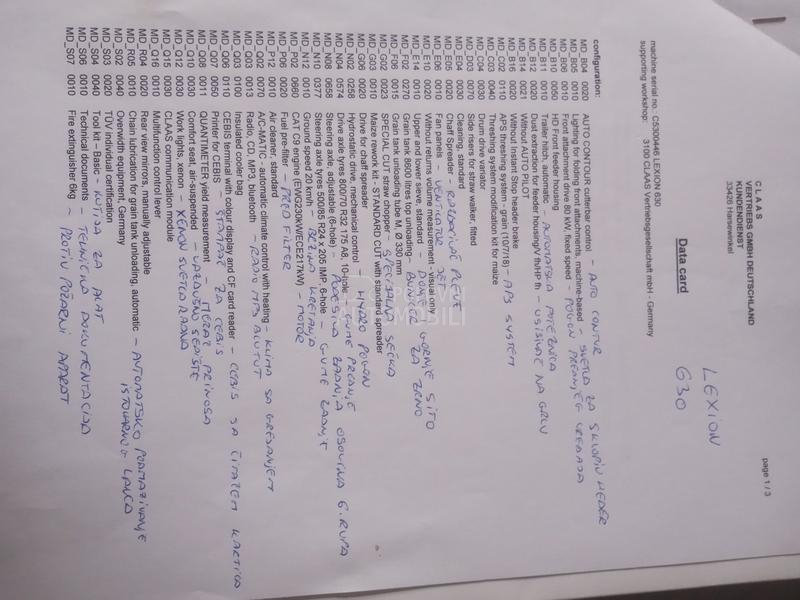 page 1 / 3
CLAAS
VERTRIEBS GMBH DEUTSCHLAND
KUNDENDIENST
33426 Harsewinkel
LEXION
630
Data card
machine serial no. C5300446 LEXION 630
supporting workshop: 3100 CLAAS Vertriebsgesellschaft mbH - Germany
configuration:
MD_B04 0020 AUTO CONTOUR cutterbar control - AUTO CONTUR
MD_B05 0010 Lighting for folding front attachments, machine-based - SVETLA ZA SKLOPIV HEDER
MD_B06 0010 Front attachment drive 80 kW, fixed speed - POGON PREDNJEG UREDAJA
MD_B10 0050 HD Front feeder housing
MD_B11 0010 Trailer hitch, automatic - AUTOMATSKA POTEZNICA
MD_B12 0020 Dust extraction for feeder housing/V fb/HP fh - USISIVAČ NA GRLU
MD_B14 0021 Without AUTO PILOT
MD_B16 0020 Without Instant Stop header brake
MD_C02 0110 APS threshing system - grain (10/7/18) - APS SYSTEM
MD_C03 0040 Threshing system modification kit for maize
MD_C04 0030 Drum drive variator
MD_D03 0070 Side risers for straw walker, fitted
MD_E04 0030 Cleaning, standard
MD_E05 0020 Chaff Spreader - RAZBACIVAČ PLEVE
MD_E06 0010 Fan panels - VENTILATOR JET
MD_E10 0020 Without returns volume measurement - visual only
MD_E14 0010 Upper and lower sieve, standard - DONJE GORNJE SITO
MD_F02 0270 Grain tank 8600 litres top unloading - BUNKER ZA ZRNO
MD_F08 0015 Grain tank unloading tube M, Ø 330 mm
MD_G02 0023 SPECIAL CUT straw chopper - SPECIJALNA SEČKA
MD_G03 0010 Maize rework kit - STANDARD CUT with standard spreader
MD_G08 0020 Drive for chaff spreader
MD_N02 0258 Hydrostatic drive, mechanical control - HYDRO POGON
MD_N04 0574 Drive axle tyres 800/70 R32 175 A8, 10-hole - GUME PREDNJE
MD_N08 0658 Steering axle, adjustable (6-hole) - PODESIVA ZADNJA OSOVINA 6. RUPA
MD_N10 0377 Steering axle tyres 500/85 R24 x 205 IMP, 6-hole - GUME ZADNJE
MD_N12 0010 Ground speed 20 km/h - BRZINA KRETANJA
MD_P02 0660 CAT C9 engine (EWG230KW/ECE217KW) - MOTOR
MD_P06 0020 Fuel pre-filter - PRED FILTER
MD_P12 0010 Air cleaner, standard
MD_Q02 0070 A/C-MATIC - automatic climate control with heating - KLIMA SA GREJANJEM
MD_Q03 0010 Radio, CD, MP3, bluetooth - RADIO MP3 BLUTUT
MD_Q03 0100 Insulated cooling bag
MD_Q06 0110 CEBIS terminal with colour display and CF card reader - CEBIS SA ČITAČEM KARTICA
MD_Q07 0050 Printer for CEBIS - ŠTAMPAČ ZA CEBIS
MD_Q08 0011 QUANTIMETER yield measurement - MERAČ PRINOSA
MD_Q10 0030 Comfort seat, air-suspended - VAZDUŠNO SEDIŠTE
MD_Q12 0030 Work lights, xenon - XENON SVETLA RADNA
MD_Q15 0030 CLAAS communication module
MD_Q16 0010 Multifunction control lever
MD_R04 0020 Rear view mirrors, manually adjustable
MD_R05 0010 Chain lubrication for grain tank unloading, automatic - AUTOMATSKO PODMAZIVANJE
ISTOVARNOG LANCA
MD_S02 0040 Overwidth equipment, Germany
MD_S03 0020 TÜV individual certification
MD_S04 0040 Tool kit - Basic - KUTIJA ZA ALAT
MD_S06 0010 Technical documents - TEHNIČKA DOKUMENTACIJA
MD_S07 0010 Fire extinguisher 6kg - PROTIV POŽARNI APARAT